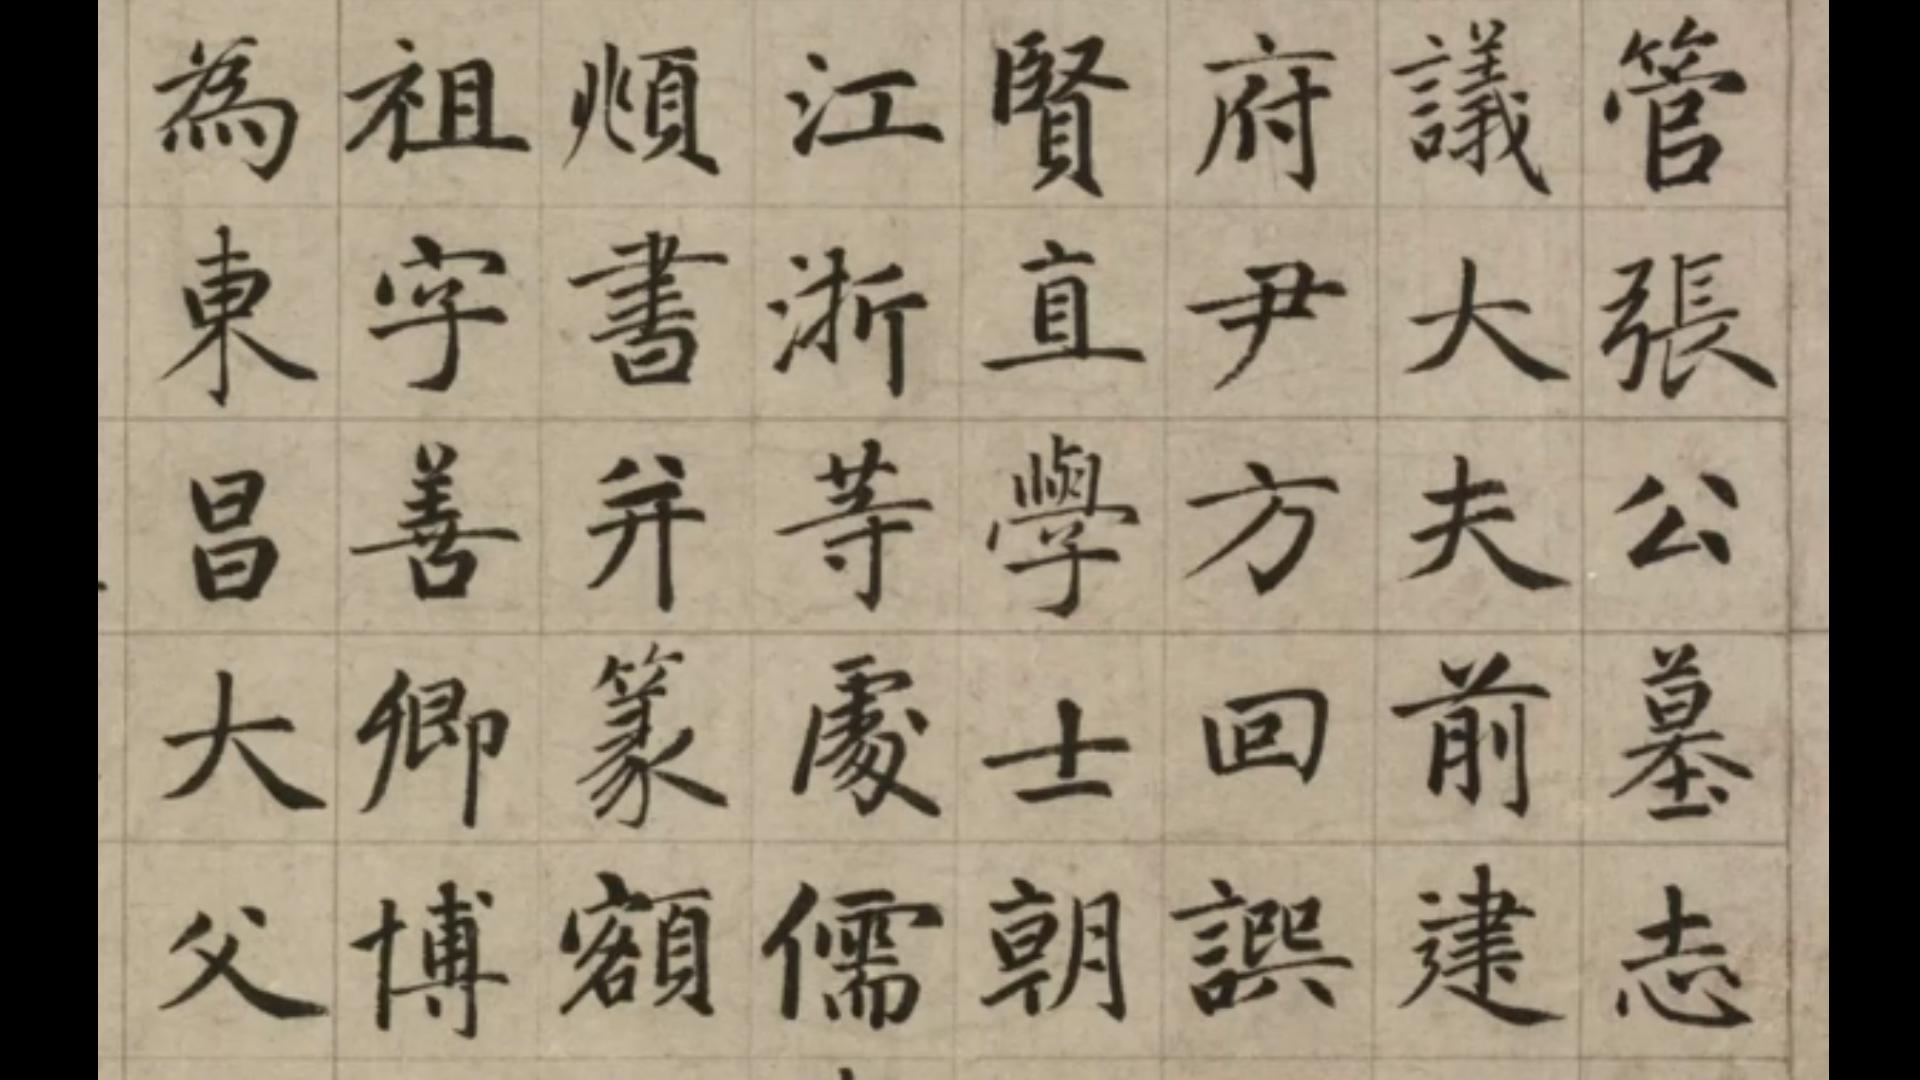 管張公墓志
議大夫前建
府尹方回譔
賢直學士朝
江浙等處儒
順書并篆額
祖字善卿博
為東昌大父